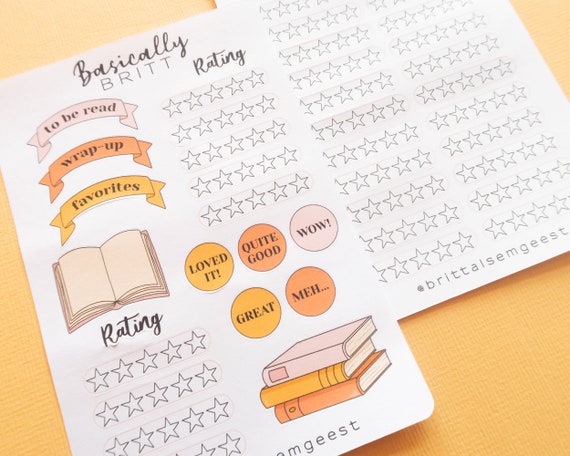 Basically
BRITT
Rating
to be read
wrap-up
favorites
LOVED
IT!
QUITE
GOOD
WOW!
GREAT
MEH...
Rating
emgeest
@brittalsemgeest